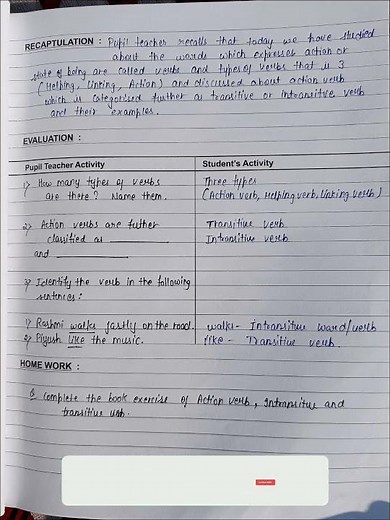 RECAPTULATION : Pupil teacher recalls that today we have studied
about the words which expresses action or
state of being are called verbs and types of verbs that is 3
(Helping, Linking, Action) and discussed about action verb
which is categorised further as transitive or intransitive verb
and their examples.
EVALUATION :
Pupil Teacher Activity
Student's Activity
1) How many types of verbs
are there? Name them.
Three types
(Action verb, Helping verb, linking verb)
2) Action verbs are further
classified as ________
and ________
Transitive verb
Intransitive verb
3) Identify the verb in the following
sentences:
1) Rashmi walks fastly on the road.
walks - Intransitive word/verb
2) Piyush like the music.
like - Transitive verb.
HOME WORK :
Q Complete the book exercise of Action verb, Intransitive and
transitive